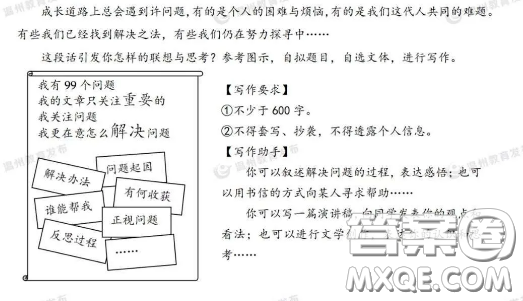 成长道路上总会遇到许问题,有的是个人的困难与烦恼,有的是我们这代人共同的难题。
有些我们已经找到解决之法，有些我们仍在努力探寻中……
这段话引发你怎样的联想与思考？参考图示，自拟题目，自选文体，进行写作。
我有99个问题
我的文章只关注重要的
我关注问题
我更在意怎么解决问题
解决办法
问题起因
有何收获
谁能帮我
正视问题
反思过程
……
【写作要求】
①不少于600字。
②不得套写、抄袭，不得透露个人信息。
【写作助手】
你可以叙述解决问题的过程，表达感悟；也可
以用书信的方式向某人寻求帮助……
你可以写一篇演讲稿，向同学发表你的观点
看法；也可以进行文学
考……
答案圈
MXQE.COM
温州教育发布